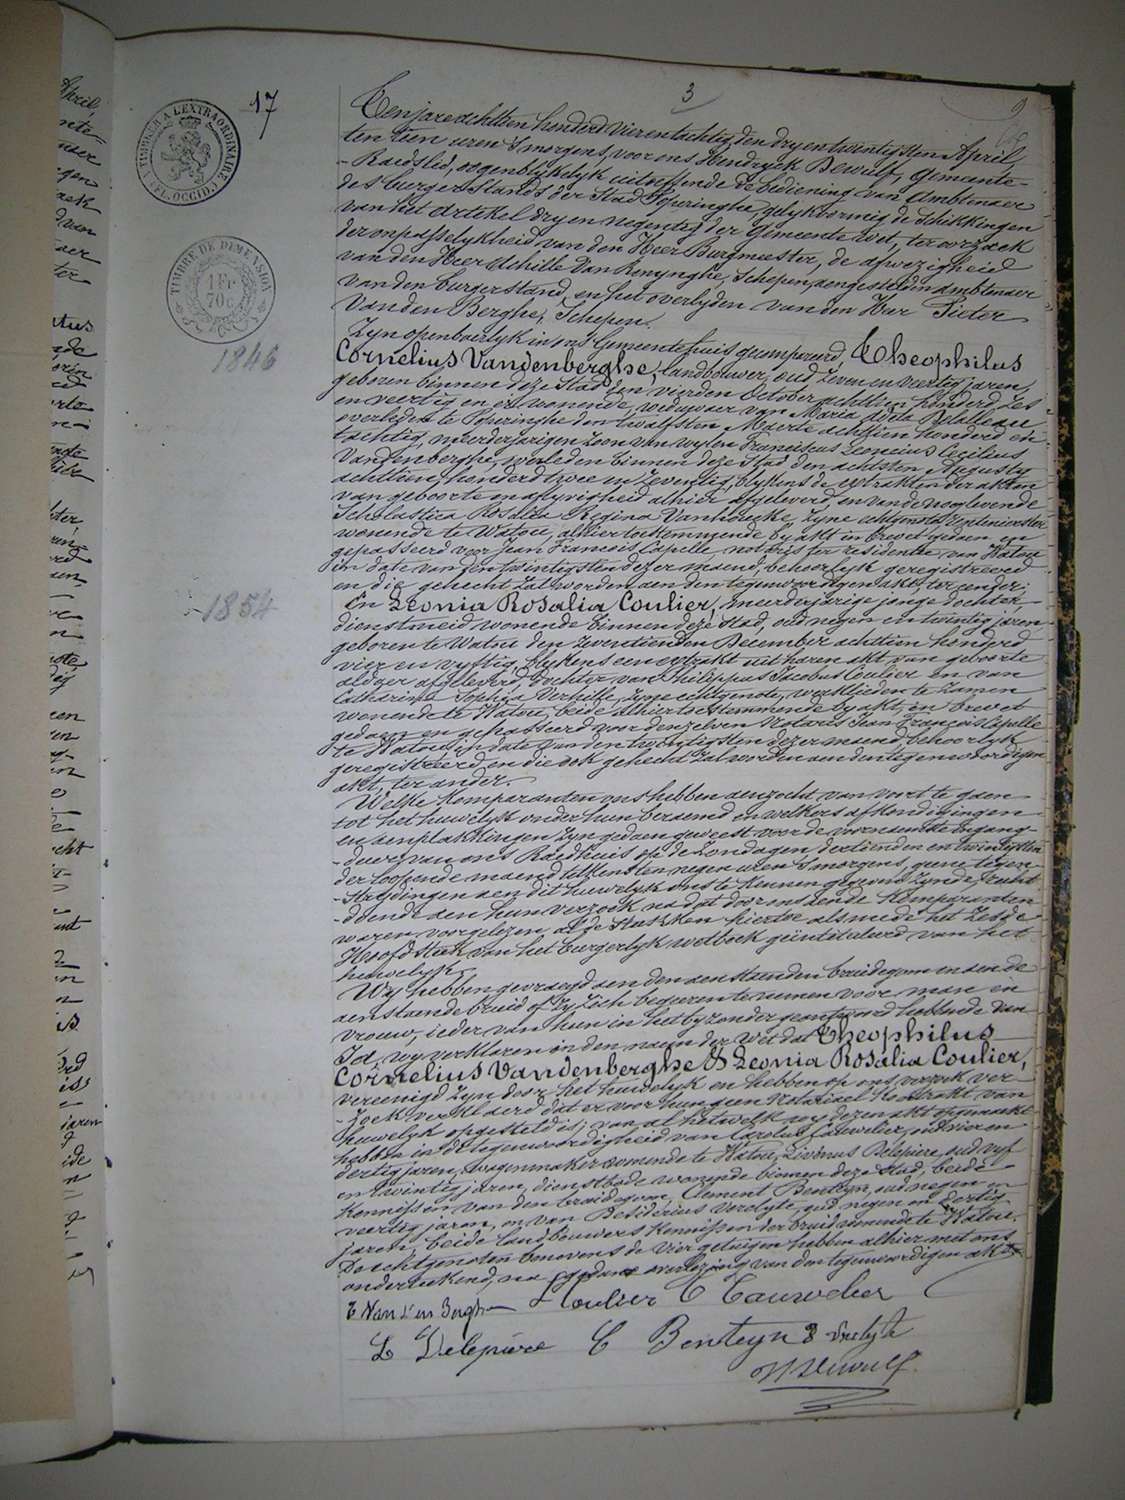 17
3
9
TIMBRE A L'EXTRAORDINAIRE
FL. OCCID.
TIMBRE DE DIMENSION
1 Fr
70 c
1846
1854
Ten jare achttien honderd vier en tachtig den dry en twintigsten April,
ten tien uren 's morgens, voor ons Hendryck Dewulf, Gemeente-
-Raedslid, oogenblikkelyk uitoeffende de bediening van Ambtenaer
des burgerstands der Stad Poperinghe, gelykvormig de schikkingen
van het artekel dry en negentig der Gemeente wet, ter oorzaek
der onpasselykheid van den Heer Burgmeester, de afwezigheid
van den Heer Achille Van Renynghe, Schepen, aengesteld ambtenaer
van den burgerstand, en het overlyden van den Heer Pieter
Van den Berghe, Schepen.
Zyn openbaerlyk in ons Gemeentehuis gecompareerd Theophilus
Cornelius Vandenberghe, landbouwer, oud zeven en veertig jaren,
geboren binnen deze Stad den vierden October achttien honderd zes
en veertig en er wonende, weduwaer van Maria
overleden te Poperinghe den twalfsten Maerte achttien honderd en
tachtig, meerderjarigen zoon van wylen Franciscus Leoncius Cecilius
Vandenberghe, overleden binnen deze Stad den achtsten Augusty
achttien honderd twee en zeventig, blykens de extrakten der akten
van geboorte en aflyvigheid alhier afgeleverd, en van de nog levende
Scholastica Rosalia Regina Vanhoucke zyne echtgenote,
wonende te Watou, alhier toestemmende by akt in brevet gedaen en
gepasseerd voor Jean Francois Capelle, notaris ter residentie van Watou
in date van den twintigsten dezer maend, behoorlyk geregistreerd
en die gehecht zal worden aen den tegenwoordigen akt, ter eender;
En Leonia Rosalia Coulier, meerderjarige jonge dochter,
dienstmeid wonende binnen deze Stad, oud negen en twintig jaren
geboren te Watou den zeventienden December achttien honderd
vier en vyftig, blykens een extrakt uit haren akt van geboorte
aldaer afgeleverd, dochter van Philippus Jacobus Coulier en van
Catharina Sophia Verhille, zyne echtgenote, werklieden te zamen
wonende te Watou, beide alhier toestemmende by akt in brevet
gedaen en gepasseerd voor denzelven Notaris Jean François Capelle
te Watou, in date van den twintigsten dezer maend, behoorlyk
geregistreerd en die ook gehecht zal worden aen den tegenwoordigen
akt, ter ander.
Welke komparanten ons hebben aenzocht van voort te gaen
tot het huwelyk onder hun beraemd en welkers afkondigingen
en aenplakkingen zyn gedaen geweest voor de voornaemste ingang-
-deure van ons Raedhuis op de Zondagen dertienden en twintigsten
der loopende maend telkens ten negen uren 's morgens, geene tegen-
-strydingen aen dit huwelyk ons te kennen gegeven zynde, recht
-doende aen hun verzoek na dat door ons aende komparanten
waren voorgelezen al de stukken hiertoe alsmede het zesde
Hoofdstuk van het burgerlyk wetboek geïntituleerd van het
huwelyk.
Wy hebben gevraegd aen den aenstaenden bruidegom en aen de
aenstaende bruid of zy zich begeeren te nemen voor man en
vrouw, ieder van hun in het byzonder geantwoord hebbende van
Ja, wy verklaren in den naem der wet dat Theophilus
Cornelius Vandenberghe & Leonia Rosalia Coulier,
vereenigd zyn door het huwelyk en hebben op ons verzoek ver-
-zoek verklaerd dat er voor hun geen Notariael kontrakt van
huwelyk opgesteld is; van al hetwelk wy dezen akt opgemaekt
hebben in de tegenwoordigheid van Carolus Cauwelier, oud vier en
dertig jaren, wagenmaker wonende te Watou, Livinus Delepiere, oud vyf
en twintig jaren, dienstbode wonende binnen deze Stad, beide
kennissen van den bruidegom, Clement Benteyn, oud negen en
veertig jaren, en van Desiderius Verelyte, oud negen en dertig
jaren, beide landbouwers kennissen der bruid wonende te Watou.
De echtgenoten benevens de vier getuigen hebben alhier met ons
onderteekend, na gedane overlezing van den tegenwoordigen akt.
T Van den Berghe L Coulier C Cauwelier
L Delepiere C Benteyn D Verelyte
H Dewulf.